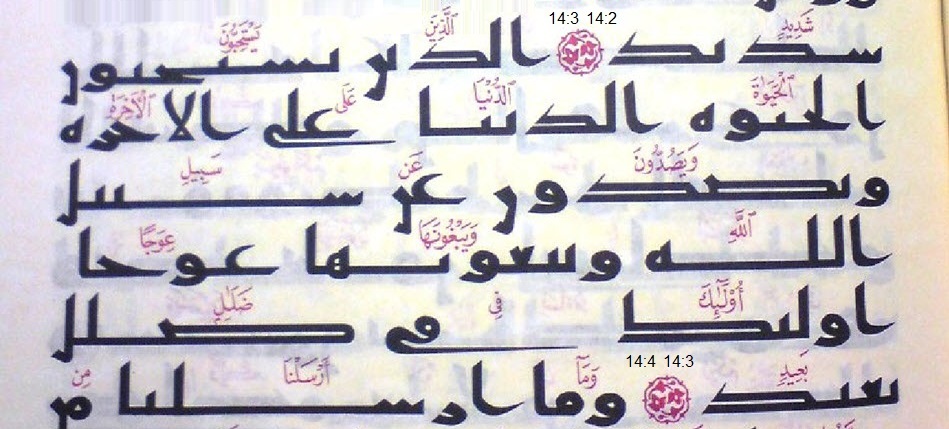 14:3 14:2
شَدِيدٍ ٱلَّذِينَ يَسْتَحِبُّونَ
سدىد الدىں ىسىحىوں
ٱلْحَيَوٰةَ ٱلدُّنْيَا عَلَى ٱلْآخِرَةِ
الحىوه الدىىا على الاحره
وَيَصُدُّونَ عَن سَبِيلِ
وىصدوں عں سىىل
ٱللَّهِ وَيَبْغُونَهَا عِوَجًا
الله وىىعوىها عوحا
أُوْلَٰٓئِكَ فِي ضَلَٰلٍ
اولىك ڡى صلل
14:4 14:3
بَعِيدٍ وَمَآ أَرْسَلْنَا مِن
ىعىد وما ارسلىا م